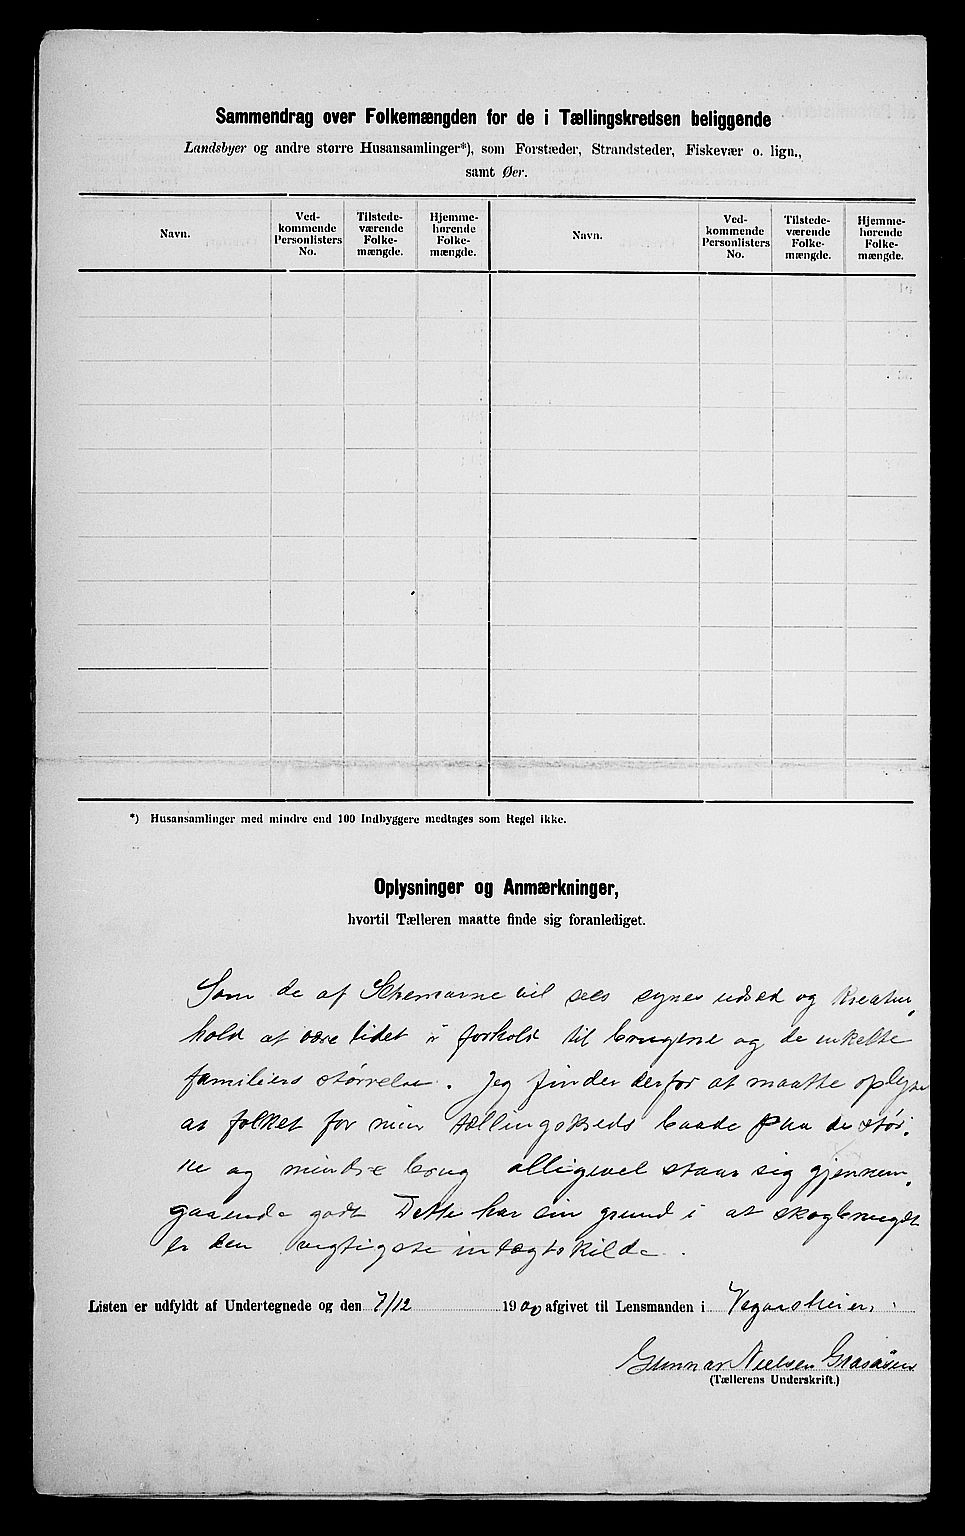 Sammendrag over Folkemængden for de i Tællingskredsen beliggende
Landsbyer og andre større Husansamlinger*), som Forstæder, Strandsteder, Fiskevær o. lign.,
samt Øer.
Navn.
Ved-
kommende
Personlisters
No.
Tilstede-
værende
Folke-
mængde.
Hjemme-
hørende
Folke-
mængde.
Navn.
Ved-
kommende
Personlisters
No.
Tilstede-
værende
Folke-
mængde.
Hjemme-
hørende
Folke-
mængde.
*) Husansamlinger med mindre end 100 Indbyggere medtages som Regel ikke.
Oplysninger og Anmærkninger,
hvortil Tælleren maatte finde sig foranlediget.
Som de af Schemarne vil sees synes udsæd og Kreatur„
hold at være lidet i forhold til brugene og de enkelte
familiers størrelse. Jeg finder derfor at maatte oplyse
at folket for min tællingskreds baade paa de stør„
re og mindre brug alligevel staar sig gjennem„
gaaende godt Dette har sin grund i at skogbruget
er den vigtigste intægtskilde.
Listen er udfyldt af Undertegnede og den 7/12 1900 afgivet til Lensmanden i Vegaarsheien.
Gunnar Nielsen Graaåsen
(Tællerens Underskrift.)